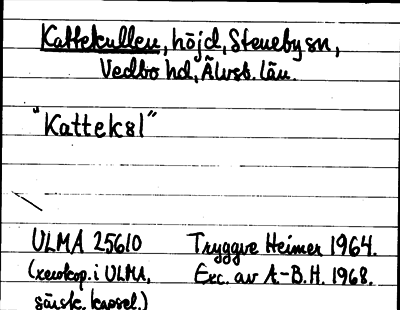 Kattekullen, höjd, Steneby sn,
Vedbo hd, Älvsb. län.
"Katteksl"
ULMA 25610 Tryggve Heimer 1964.
(xerokop. i ULMA, Exc. av A.-B.H. 1968.
särsk. kapsel.)